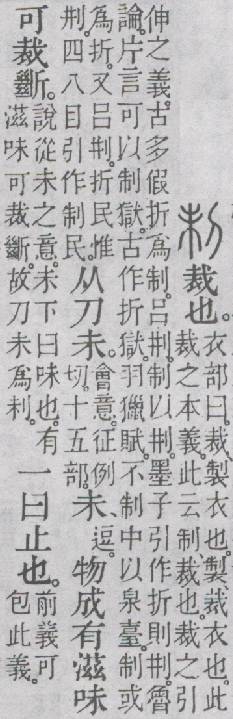 𠛐裁也。衣部曰。裁、製衣也。製、裁衣也。此裁之本義。此云制、裁也。裁之引
伸之義。古多假折爲制。呂㓝。制以㓝。墨子引作折則㓝。魯論。片言可以制獄。古作折獄。羽獵賦。不制中以泉臺。制或
爲折。又呂㓝。折民惟㓝。四八目引作制民。从刀未。會意。征例切。十五部。未逗。物成有滋味
可裁斷。說從未之意。未下曰味也。有滋味可裁斷。故刀未爲利。一曰止也。前義可包此義。